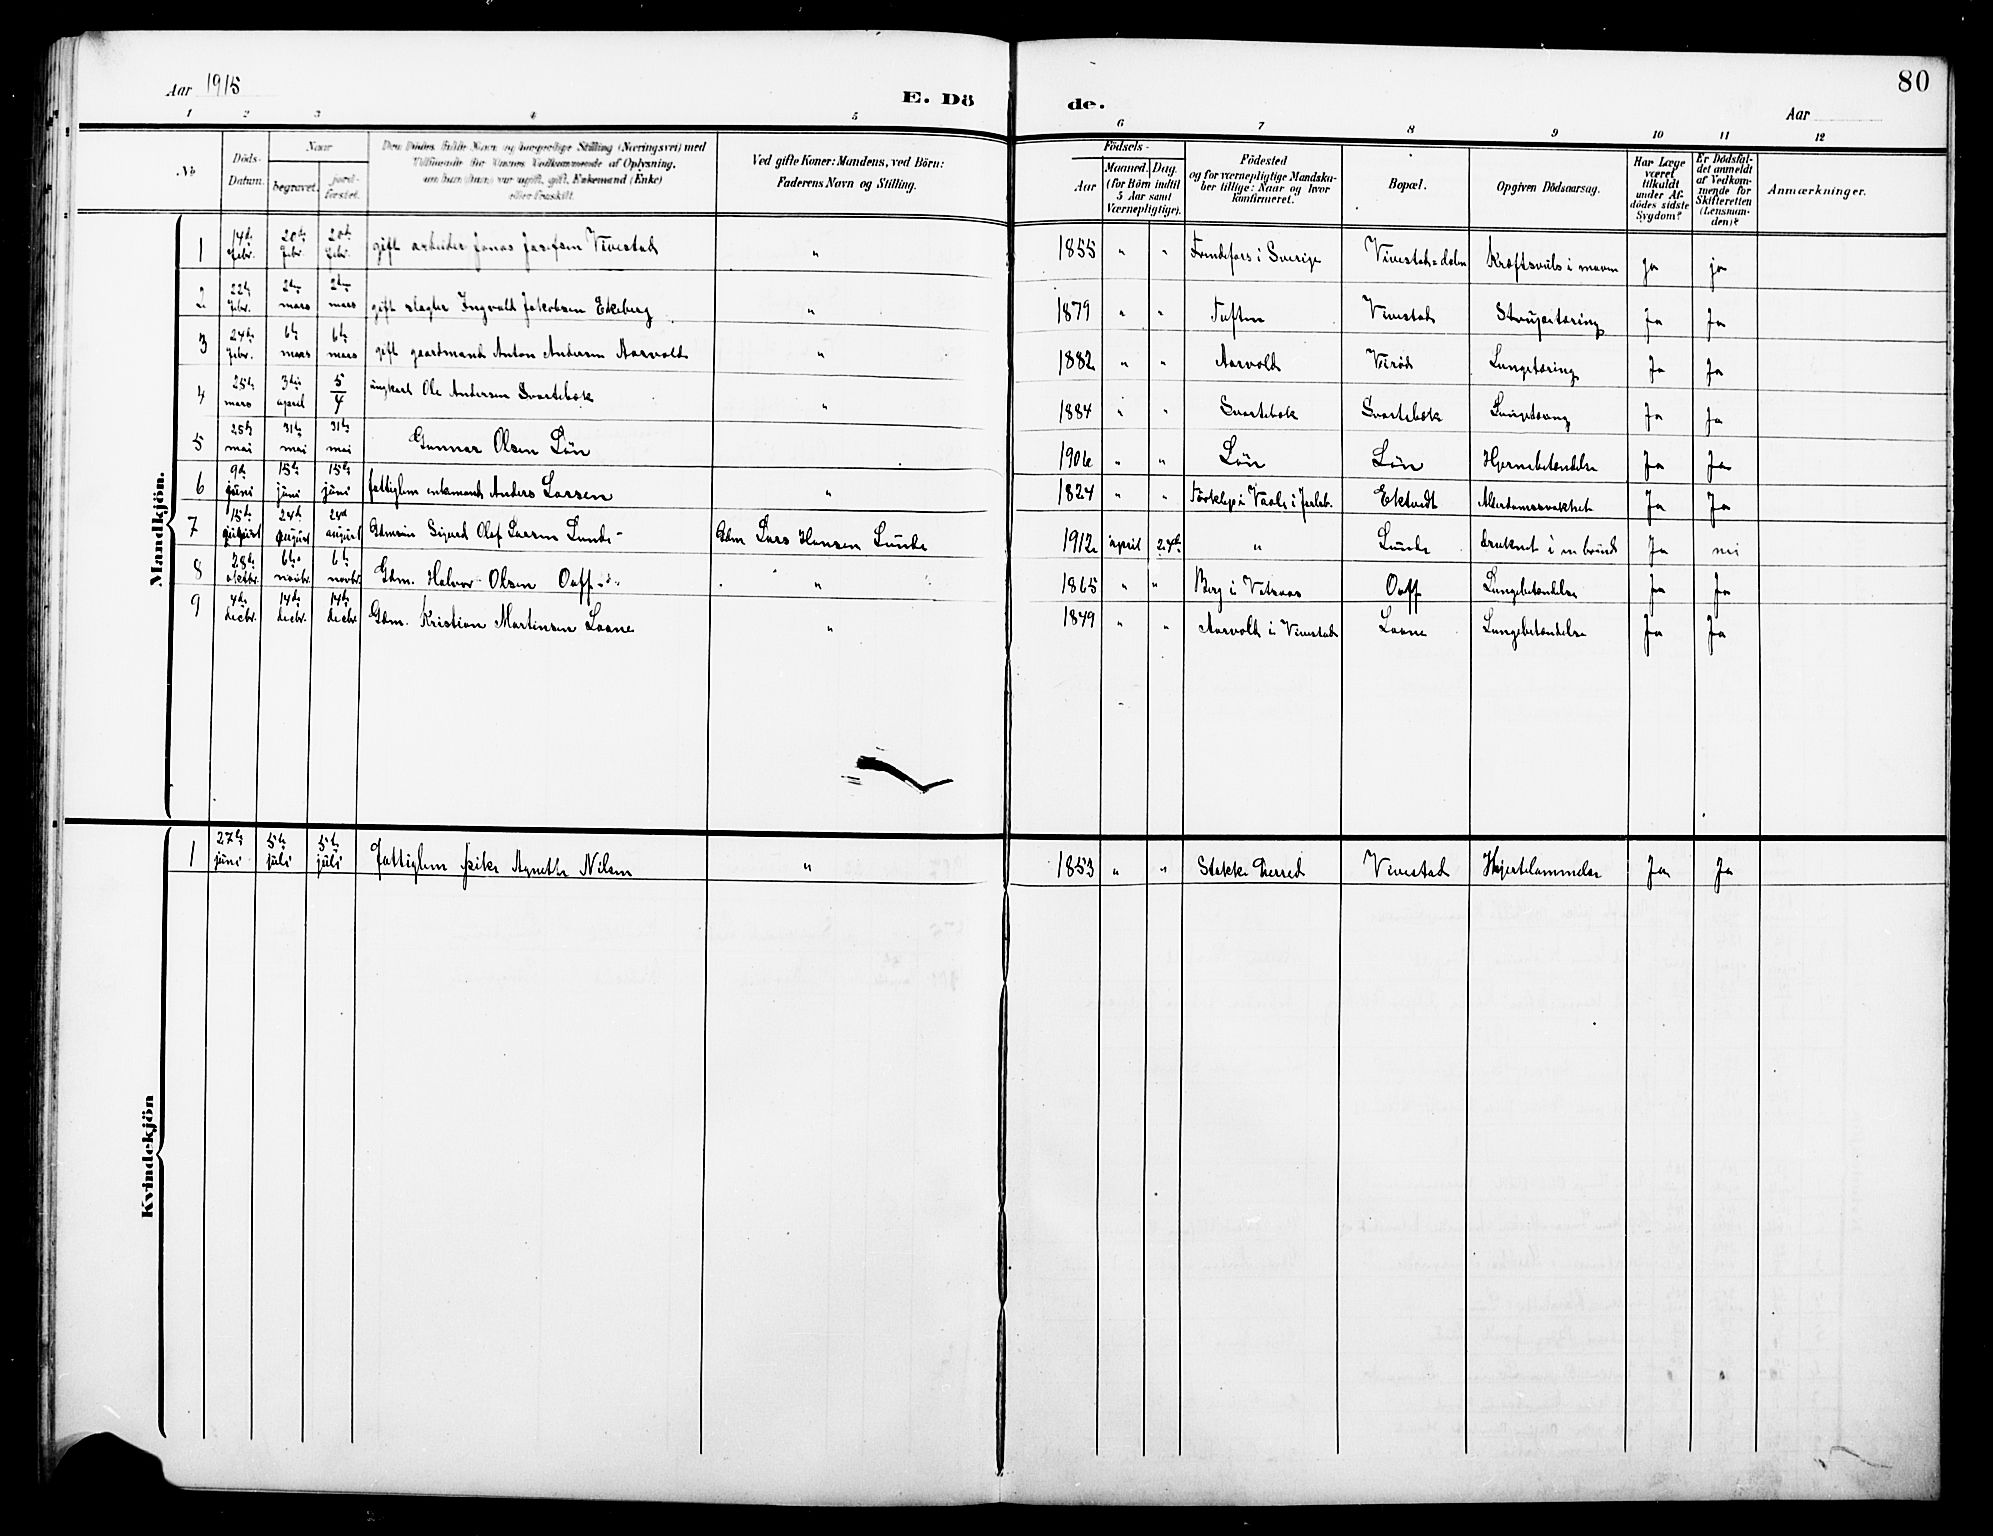 80
Aar 1915
E. Dö de.
Aar
1 2 3 4 5 6 7 8 9 10 11 12
No
Döds-Datum.
Naar
begravet. jordfæstet.
Den Dödes fulde Navn og borgerlige Stilling (Næringsvei) med
Tilföiende for Vaxnes Vedkommende af Oplysning,
om hun (han) var ugift, gift, Enkemand (Enke)
eller fraskilt.
Ved gifte Koner: Mandens, ved Börn:
Faderens Navn og Stilling.
Födsels-
Aar
Maaned. Dag.
(for Börn indtil
5 Aar samt
Værnepligtige).
Födested
og for værnepligtige Mandska-
ber tillige: Naar og hvor
konfirmeret.
Bopæl.
Opgiven Dödsaarsag.
Har Læge
været
tilkaldt
under Af-
dödes sidste
Sygdom?
Er Dödsfal-
det anmeldt
af Vedkom-
mende for
Skifteretten
(Lensman-
den)?
Anmærkninger.
Mandkjön.
1 14de febr. 20de febr. 20de febr. gift arbeider Jonas Josefsen Vivestad " 1855 " " i Sverige Vivestad-dalen Kræftsvuls i maven ja ja
2 22de febr. 2den mars 2den mars gift slagter Ingvald Jakobsen Ekeberg " 1879 " " Tuften Vivestad Strupetæring Ja Ja
3 24de febr. 6te mars 6te mars gift gaardmand Anton Andersen Aarvold " 1882 " " Aarvold Virød Lungetæring Ja Ja
4 25de mars 3die april 5/4 ungkarl Ole Andersen Svartebæk " 1884 " " Svartebæk Svartebæk Lungetæring Ja Ja
5 25de mai 31te mai 31te mai Gunnar Olsen Lön 1906 " " Lön Lön Hjernebetændelse Ja Ja
6 9de juni 15de juni 15de juni fattiglem enkemand Anders Larsen " 1824 " " i Vaale i Jarlsb. Ektvedt Alderdomssvakhet Ja Ja
7 15de august 24de august 24de august Gdmsön Sigurd Olaf Larsen Lunde- Gdm Lars Hansen Lunde 1912 april 24de " Lunde druknet i en brönd Ja nei
8 28de oktbr. 6te novbr. 6te novbr. Gdm. Halvor Olsen Oaff " 1865 " " Berg i Vivestad Oaff Lungebetændelse Ja Ja
9 4de decbr. 14de decbr. 14de decbr. Gdm. Kristian Martinsen Laane " 1849 " " Aarvold i Vivestad Laane Lungebetændelse Ja Ja
Kvindekjön
1 27de juni 5te juli 5te juli Fattiglem pike Agnethe Nilsen " 1853 " " Stokke herred Vivestad Hjertelammelse Ja Ja